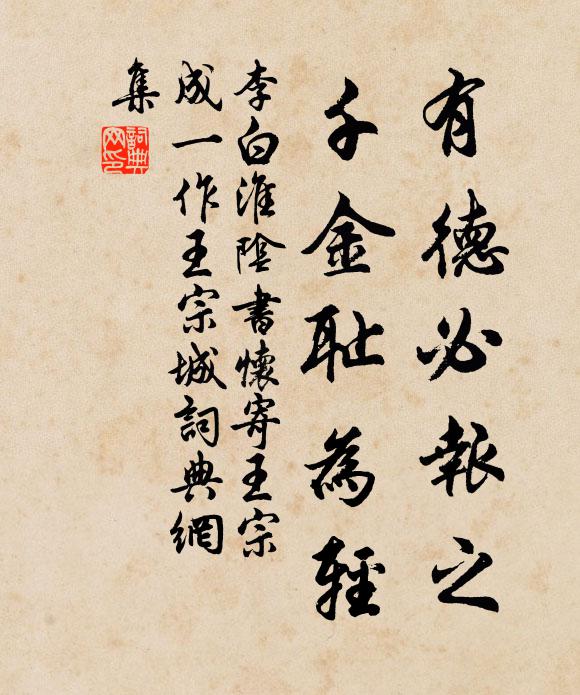 有德必報之
千金耻為輕
李白淮陰書懷寄王宗
成一作王宗城詞典網
集
詞典
网印